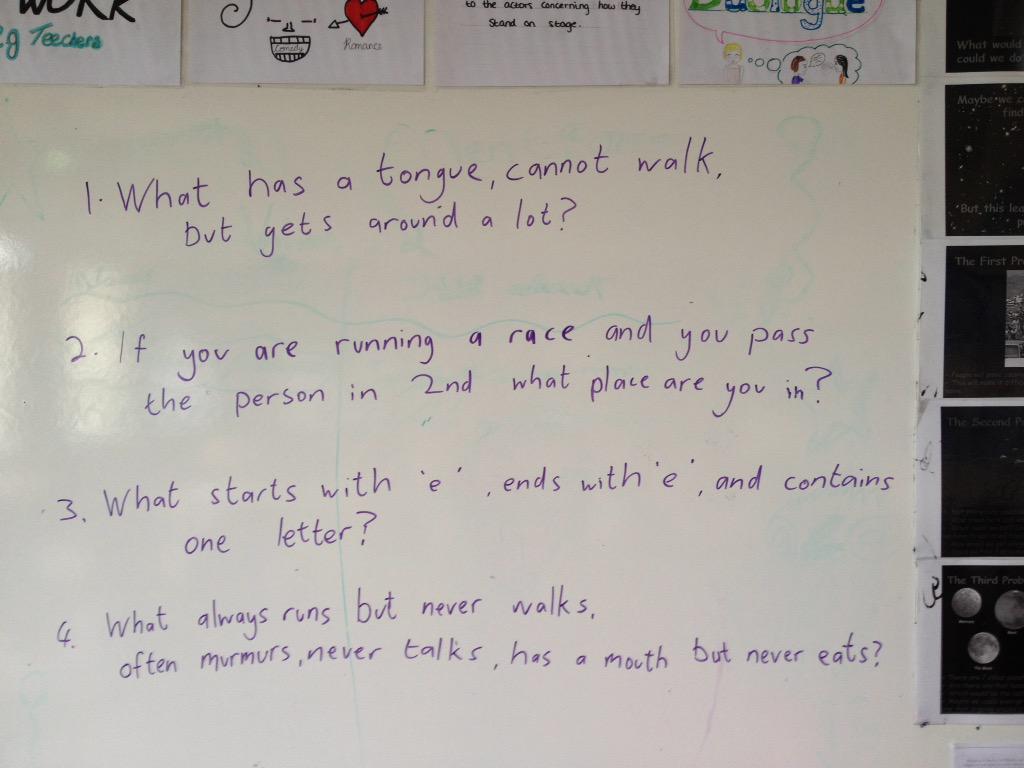 WORK
eg Teechers
Comedy
Romance
to the actors concerning how they
stand on stage.
1. What has a tongue, cannot walk,
but gets around a lot?
2. If you are running a race and you pass
the person in 2nd what place are you in?
3. What starts with 'e', ends with 'e', and contains
one letter?
4. What always runs but never walks,
often murmurs, never talks, has a mouth but never eats?
What would
could we do
Maybe we c
find
"But this lea
P
The First Pr
The Second P
The Third Prob